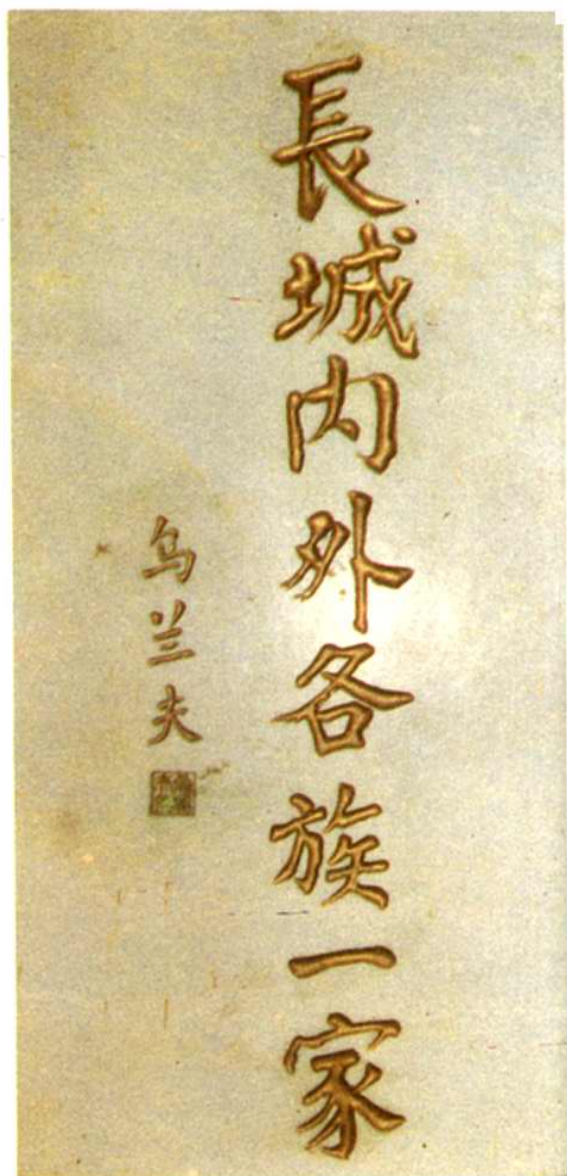 長城内外各族一家
乌兰夫